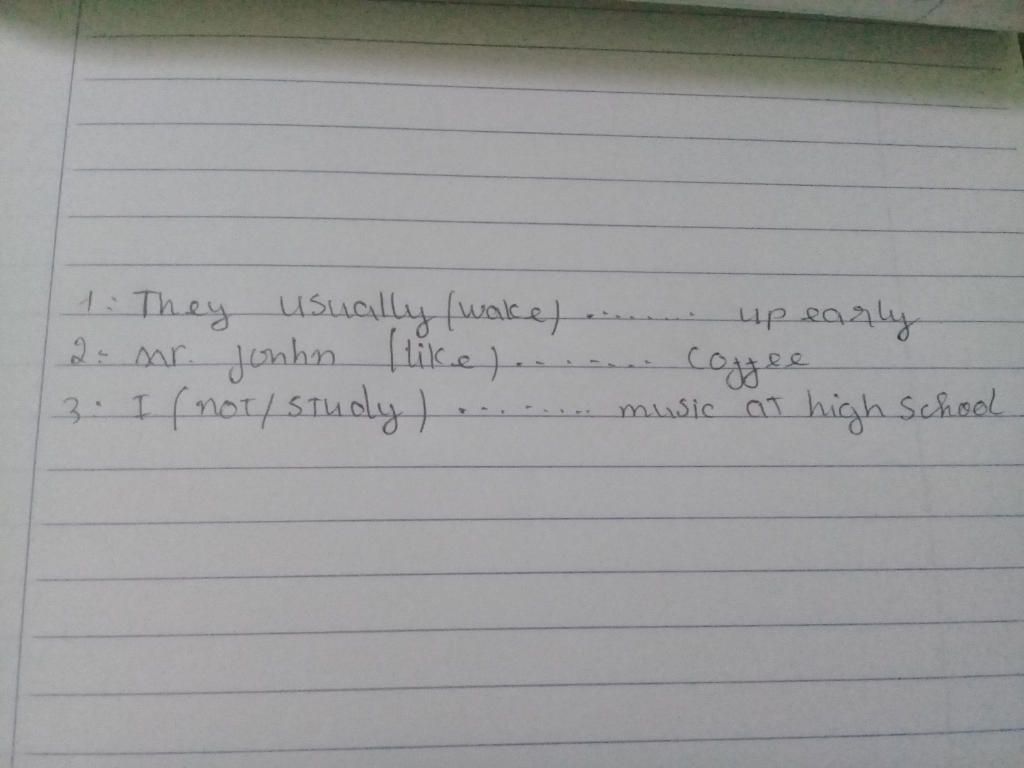 1: They usually (wake) ........ up early
2= mr. jonhn (like) ........ Coffee
3. I (not/study) ......... music at high school